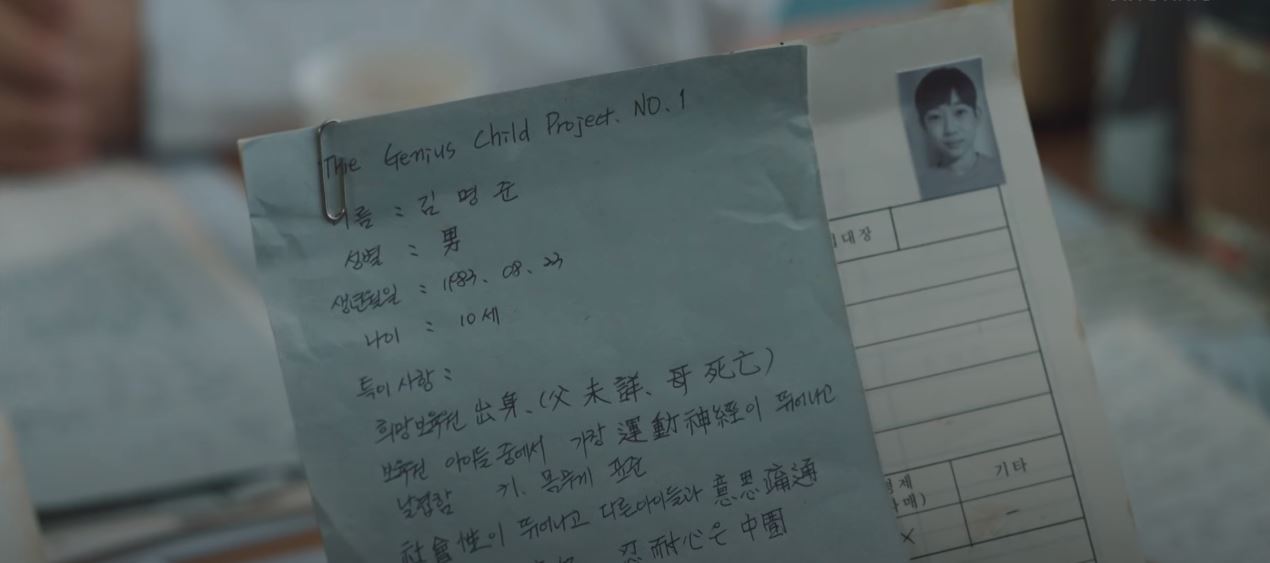 The Genius Child Project. NO.1
이름 : 김명준
성별 : 男
생년월일 : 1983. 08. 23
나이 : 10세
특이사항 :
희망보육원 出身. (父 未詳, 母 死亡)
보육원 아이들 중에서 가장 運動神經이 뛰어나고
날렵함 키, 몸무게 표준
社會性이 뛰어나고 다른아이들과 意思疏通
忍耐心은 中
대장
기타
매)
X
-